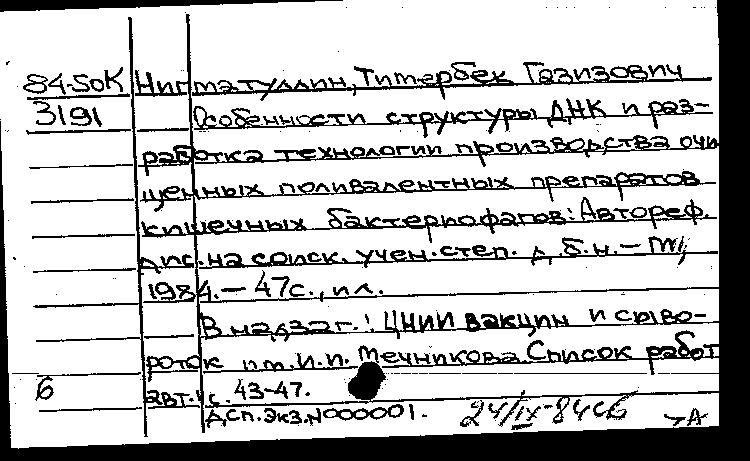 84-50К Нигматуллин, Тимербек Газизович
3191 Особенности структуры ДНК и раз-
работка технологии производства очи
щенных поливалентных препаратов
кишечных бактериофагов: Автореф.
дис. на соиск. учен. степ. д. б. н. – М.,
1984. – 47 с., ил.
В надзаг.: ЦНИИ вакцин и сыво-
роток им. И. И. Мечникова. Список работ
6 авт.: с. 43-47.
ДСП. Экз. N000001. 24/IX-84